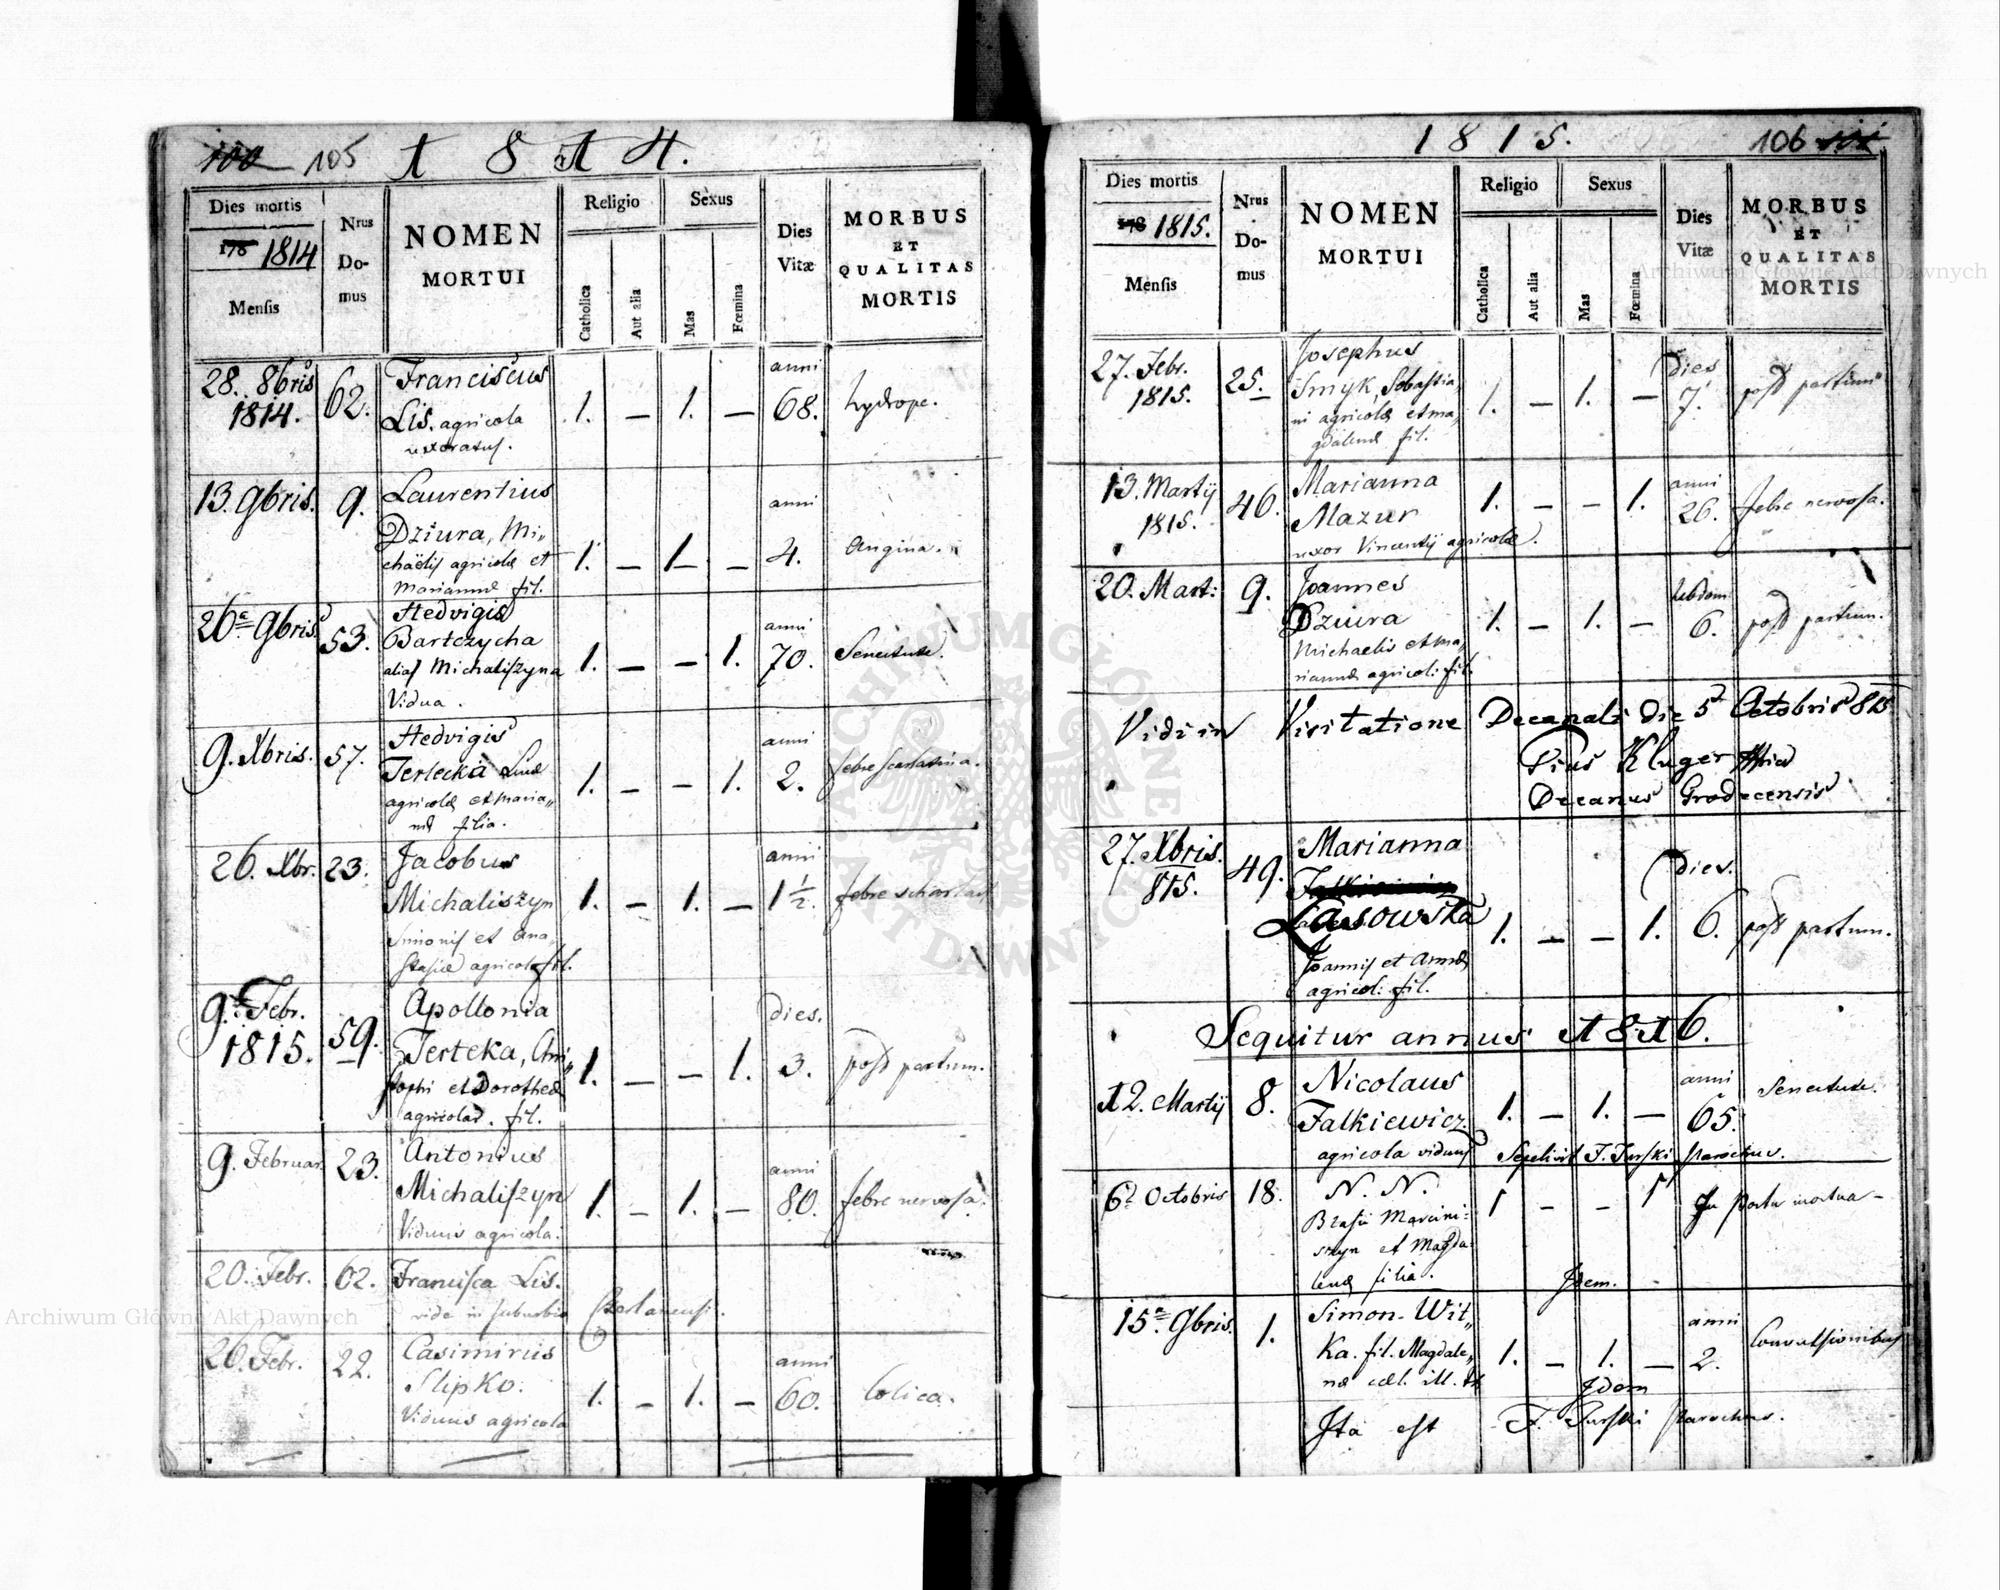 105 1814.
Dies mortis
1814
Mensis
Nrus Domus
NOMEN
MORTUI
Religio
Catholica
Aut alia
Sexus
Mas
Fœmina
Dies
Vitæ
MORBUS
ET
QUALITAS
MORTIS
28. 8bris 62. Franciscus anni
1814. Lis. agricola 1. — 1. — 68. hydrope.
uxoratus.
13. 9bris. 9. Laurentius anni
Dziura, Mi„
chaëlis agricolæ et 1. — 1. — 4. Angina.
Mariannæ fil.
26ª 9bris 53. Hedvigis anni
Bartczycha
alias Michaliszyna 1. — — 1. 70. Senectute.
Vidua.
9. Xbris. 57. Hedvigis anni
Terlecka Lucæ 1. — — 1. 2. febre scarlatina.
agricolæ et Maria„
næ filia.
26. Xbr. 23. Jacobus anni
Michaliszyn 1. — 1. — 1 1/2.
Simonis et Ana„
stasiæ agricol. fil.
9. Febr. Apollonia dies.
1815. 59. Terleka, Chri„ 1. — — 1. 3. post partum.
stophi et Dorotheæ
agricolar. fil.
9. Februar. 23. Antonius anni
Michaliszyn 1. — 1. — 80. febre nervosa.
Viduus agricola.
20. Febr. 62. Francisca Lis.
vide in suburbio
26. Febr. 22. Casimirus anni
Slipko. 1. — 1. — 60. Colica.
Viduus agricola
1815. 106
Dies mortis
1815.
Mensis
Nrus Domus
NOMEN
MORTUI
Religio
Catholica
Aut alia
Sexus
Mas
Fœmina
Dies
Vitæ
MORBUS
ET
QUALITAS
MORTIS
27. Febr. 25. Josephus dies
1815. Smyk, Sebastia„ 1. — 1. — 7. post partum
ni agricolæ et Ma„
gdalenæ fil.
13. Martij 46. Marianna 1. — — 1. anni
1815. Mazur 26. febre nervosa.
uxor Vincentij agricolæ.
20. Mart: 9. Joannes hebdom.
Dziura 1. — 1. — 6. post partum.
Michaelis et Ma„
riannæ agricol: fil.
Vidi in Visitatione Decanali die 5 Octobris 815
Pius Kluger
Decanus Grodecensis
27. Xbris. 49. Marianna dies.
815. Lasowska 1. — — 1. 6. post partum.
Joannis et Annæ
agricol: fil.
Sequitur annus 1816.
12. Martij 8. Nicolaus anni Senectute.
Falkiewicz. 1. — 1. — 65.
agricola viduus Sepelivit F. Turski Parochus.
6ª Octobris 18. N. N. 1 — — 1 In Partu mortua —
Blasii Marcini:
szyn et Magda:
lenæ filia. Idem.
15ª 9bris. 1. Simon Wit„ anni Convulsionibus
ka. fil. Magdale„ 1. — 1. — 2.
næ cæl. ill. Idem
Ita est F. Turski Parochus.
Archiwum Główne Akt Dawnych
Archiwum Główne Akt Dawnych
ARCHIWUM GŁÓWNE AKT DAWNYCH